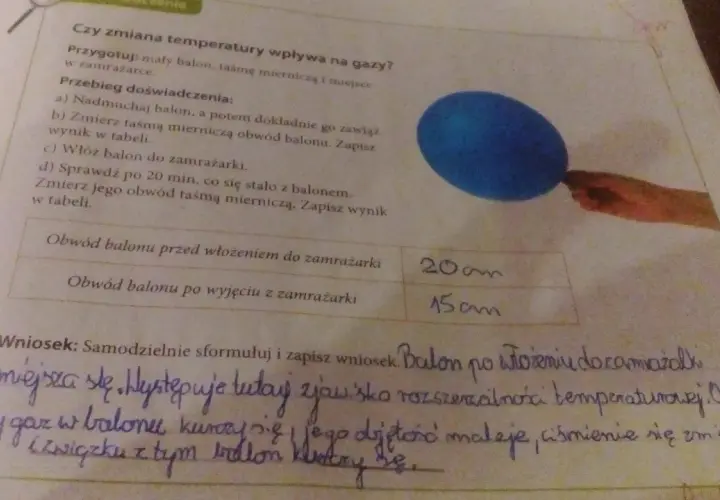 Czy zmiana temperatury wpływa na gazy?
Przygotuj: mały balon, taśmę mierniczą i miejsce
w zamrażarce.
Przebieg doświadczenia:
a) Nadmuchaj balon, a potem dokładnie go zawiąż.
b) Zmierz taśmą mierniczą obwód balonu. Zapisz
wynik w tabeli.
c) Włóż balon do zamrażarki.
d) Sprawdź po 20 min, co się stało z balonem.
Zmierz jego obwód taśmą mierniczą. Zapisz wynik
w tabeli.
Obwód balonu przed włożeniem do zamrażarki 20 cm
Obwód balonu po wyjęciu z zamrażarki 15 cm
Wniosek: Samodzielnie sformułuj i zapisz wniosek. Balon po włożeniu do zamrażalki
miejsza się. Występuje tutaj zjawisko rozszerzalności temperaturowej.
gaz w balonie kurczy się, jego objętość maleje, ciśnienie się
związku z tym balon kurczy się.